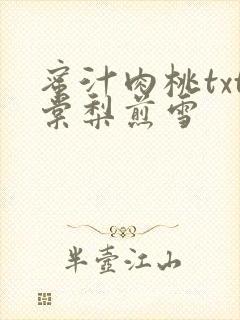 蜜汁肉桃txt
棠梨煎雪
半壶江山